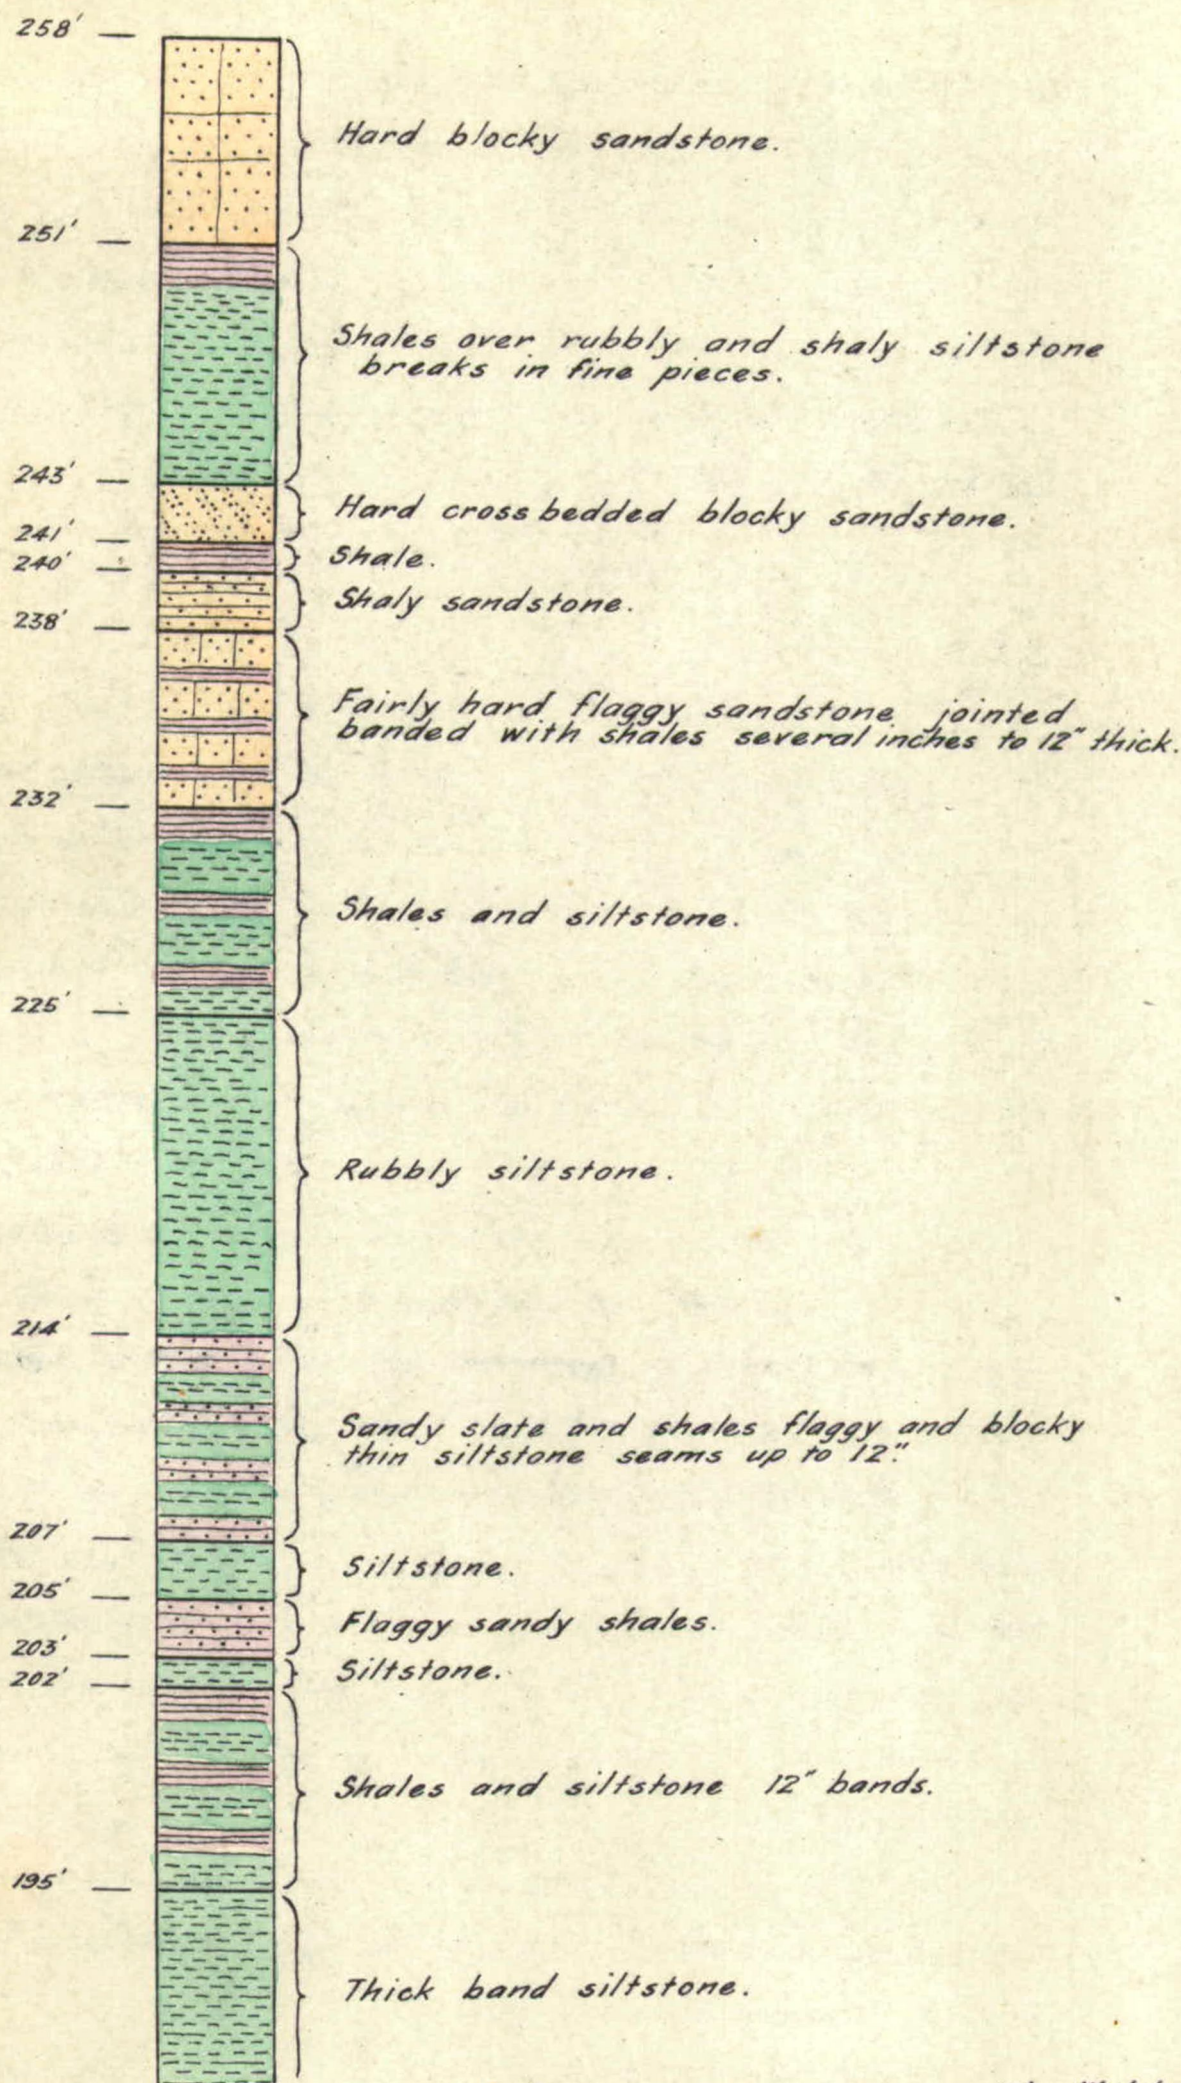 258'
Hard blocky sandstone.
251'
Shales over rubbly and shaly siltstone
breaks in fine pieces.
243'
Hard cross bedded blocky sandstone.
241'
Shale.
240'
Shaly sandstone.
238'
Fairly hard flaggy sandstone jointed
banded with shales several inches to 12" thick.
232'
Shales and siltstone.
225'
Rubbly siltstone.
214'
Sandy slate and shales flaggy and blocky
thin siltstone seams up to 12".
207'
Siltstone.
205'
Flaggy sandy shales.
203'
Siltstone.
202'
Shales and siltstone 12" bands.
195'
Thick band siltstone.